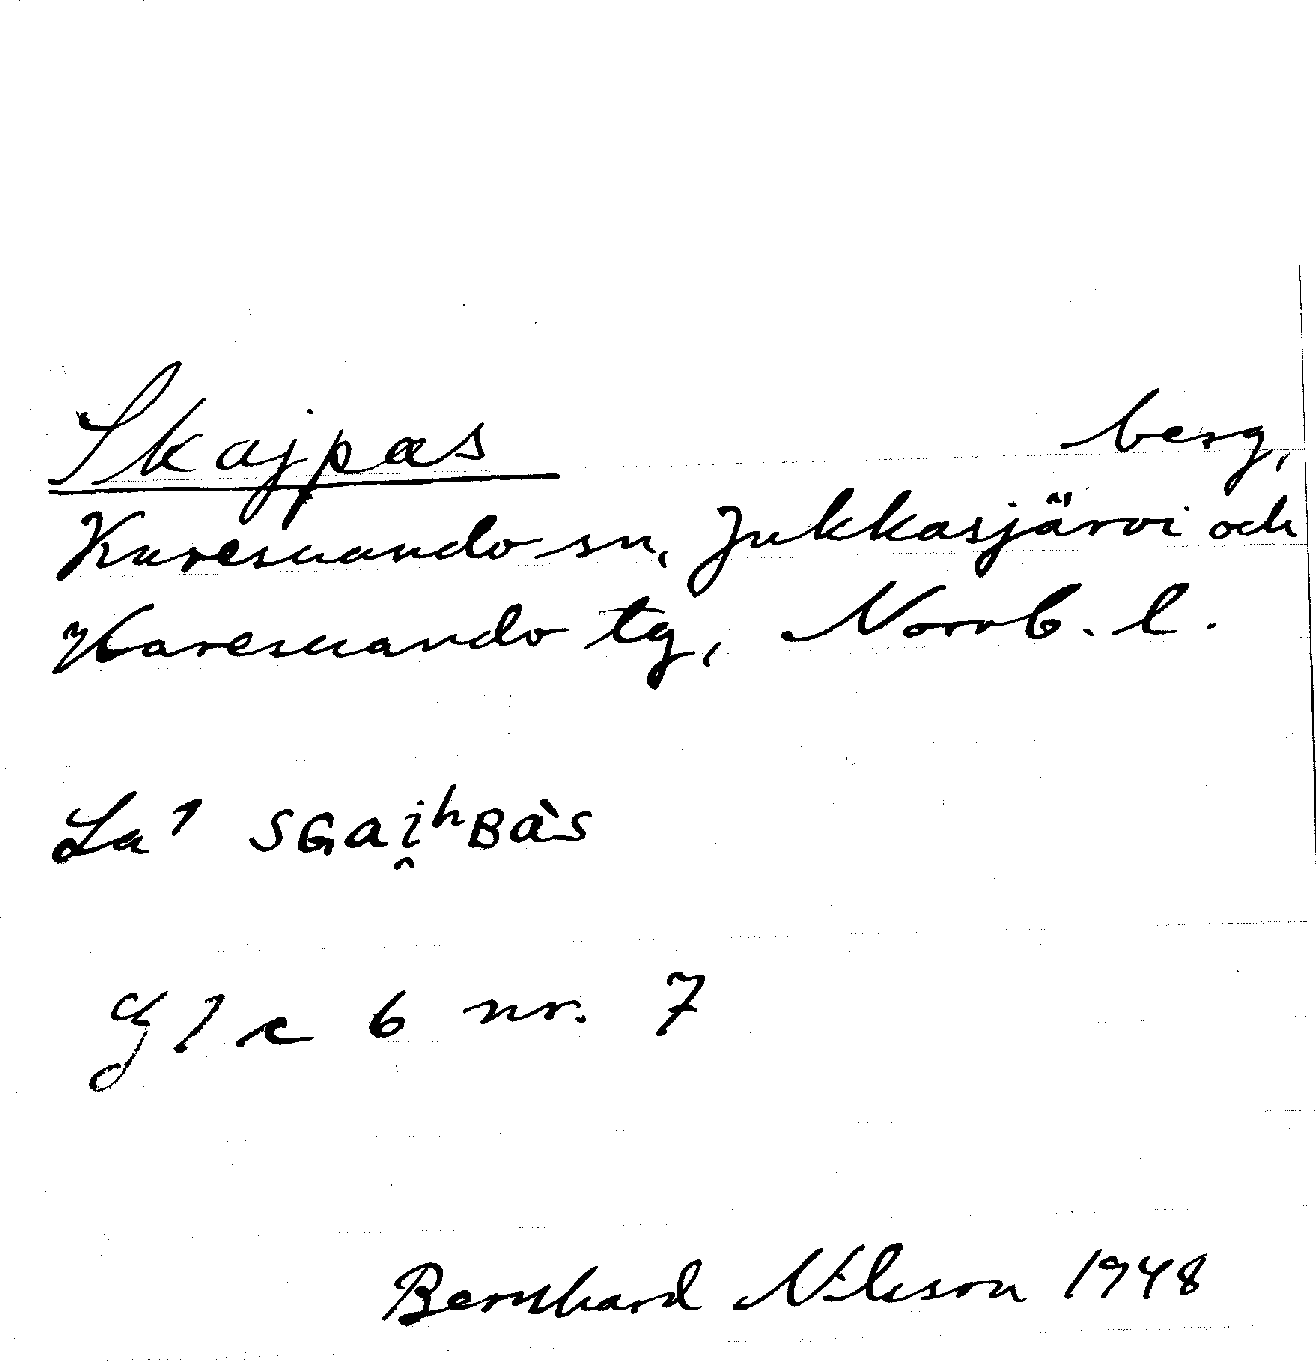 Skajpas berg,
Karesuando sn, Jukkasjärvi och
Karesuando tg, Norrb. l.
La 1 SGai̯ʰBàs
G 1 c 6 nr. 7
Bernhard Nilsson 1948